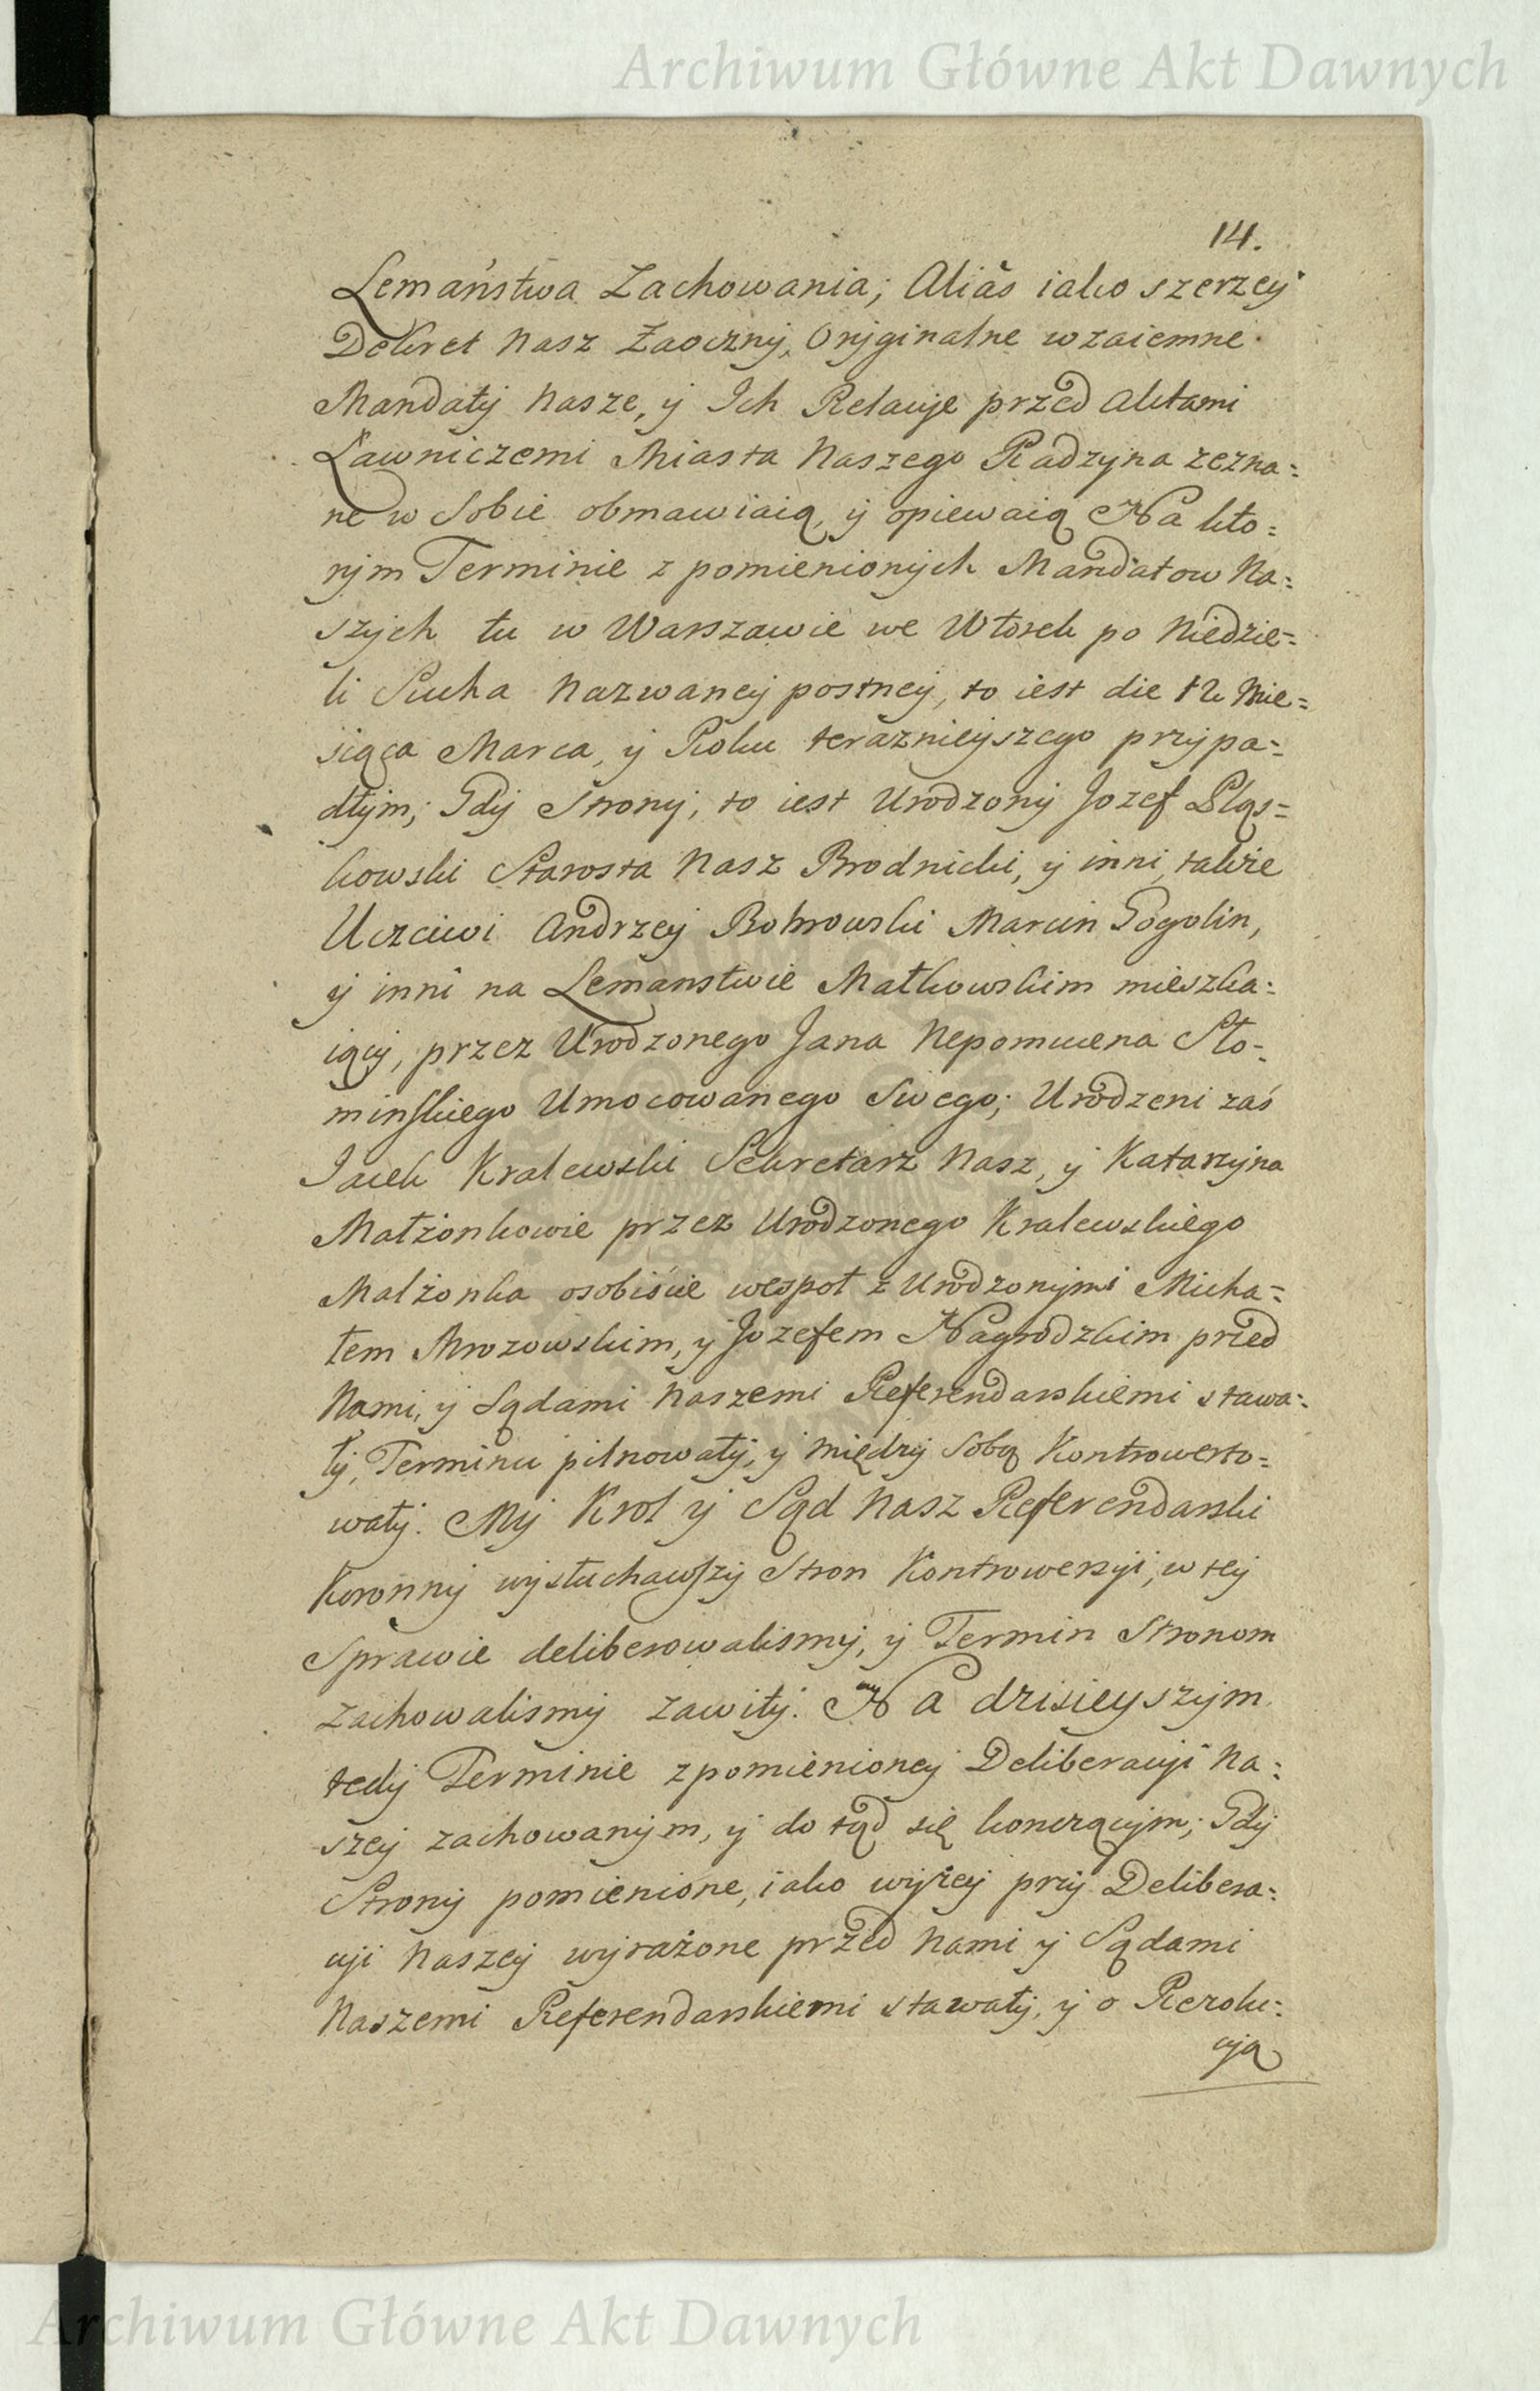 Archiwum Główne Akt Dawnych
14.
Lemaństwa Zachowania; Aliàs iako szerzey
Dekret Nasz Zaoczny, Oryginalne wzaiemne
Mandaty Nasze, y Ich Relacye przed Aktami
Ławniczemi Miasta Naszego Radzyna zezna=
ne w Sobie obmawiaią, y opiewaią Na kto=
rym Terminie z pomienionych Mandatow Na=
szych tu w Warszawie we Wtorek po Niedzie=
li Sucha Nazwaney postney, to iest die 12 Mie=
siąca Marca, y Roku teraznieyszego przypa=
dłym; Gdy Strony, to iest Urodzony Jozef Pląs=
kowski Starosta Nasz Brodnicki, y inni, takze
Uczciwi Andrzey Bobrowski Marcin Gogolin,
y inni na Lemanstwie Małkowskim mieszka=
iący, przez Urodzonego Jana Nepomucena Sło=
minskiego Umocowanego Swego; Urodzeni zaś
Jacek Kralewski Sekretarz Nasz, y Katarzyna
Małżonkowie przez Urodzonego Kralewskiego
Malżonka osobiście wespoł z Urodzonymi Micha=
łem Mrozowskim, y Jozefem Nagrodzkim przed
Nami, y Sądami Naszemi Referendarskiemi stawa=
ły, Terminu pilnowały, y między Sobą Kontrowerto=
wały. My Krol y Sąd Nasz Referendarski
Koronny wysłuchawszy Stron Kontrowersyi, w tey
Sprawie deliberowalismy, y Termin Stronom
zachowalismy zawity. Na dzisieyszym
tedy Terminie z pomienioney Deliberacyi Na=
szey zachowanym, y do tąd się konczącym; Gdy
Strony pomienione, iako wyżey przy Delibera=
cyi Naszey wyrażone przed Nami y Sądami
Naszemi Referendarskiemi stawały, y o Rezolu=
cyą
Archiwum Główne Akt Dawnych